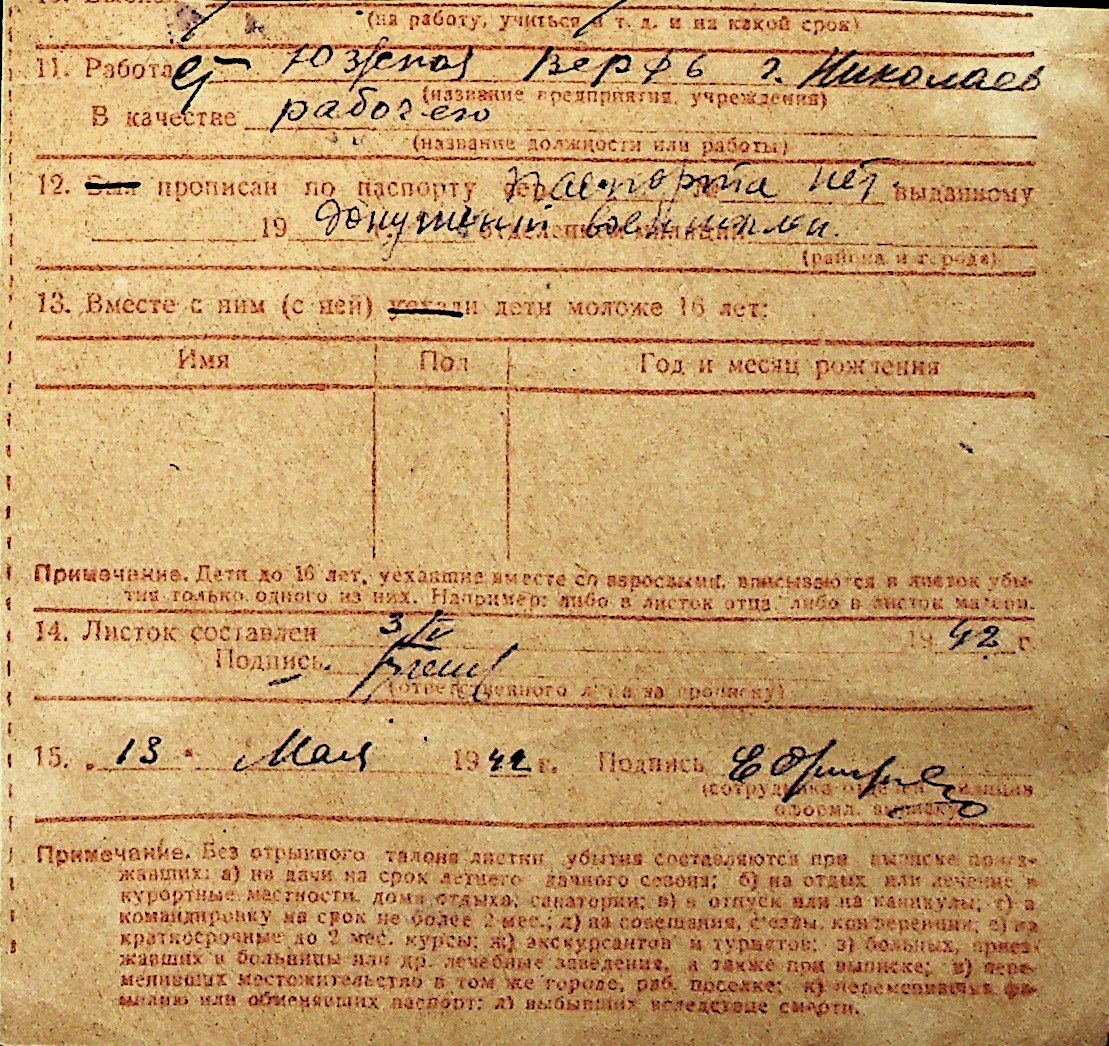 (на работу, учиться и т. д. и на какой срок)
11. Работа Южная Верфь г. Николаев
(название предприятия, учреждения)
В качестве рабочего
(название должности или работы)
12. прописан по паспорту паспорта нет выданному
19
(района и города)
13. Вместе с ним (с ней) дети моложе 16 лет:
Имя Пол Год и месяц рождения
Примечание. Дети до 16 лет, уехавшие вместе со взрослыми, вписываются в листок убы-
тия только одного из них. Например: либо в листок отца либо в листок матери.
14. Листок составлен 3/IV 1942 г.
Подпись
(ответственного лица за прописку)
15. „13“ Мая 1942 г. Подпись
(сотрудника отдел. милиции
оформл. выписку)
Примечание. Без отрывного талона листки убытия составляются при выписке поезжавших: а) на дачи на срок летнего дачного сезона; б) на отдых или лечение в
курортные местности, дома отдыха, санатории; в) в отпуск или на каникулы; г) в
командировку на срок не более 2 мес.; д) на совещания, съезды, конференции; е) на
краткосрочные до 2 мес. курсы; ж) экскурсантов и туристов; з) больных, приез-
жавших в больницы или др. лечебные заведения, а также при выписке; и) пере-
менивших местожительство в том же городе, раб. поселке; к) переменивших фа-
милию или обменявших паспорт; л) выбывших вследствие смерти.